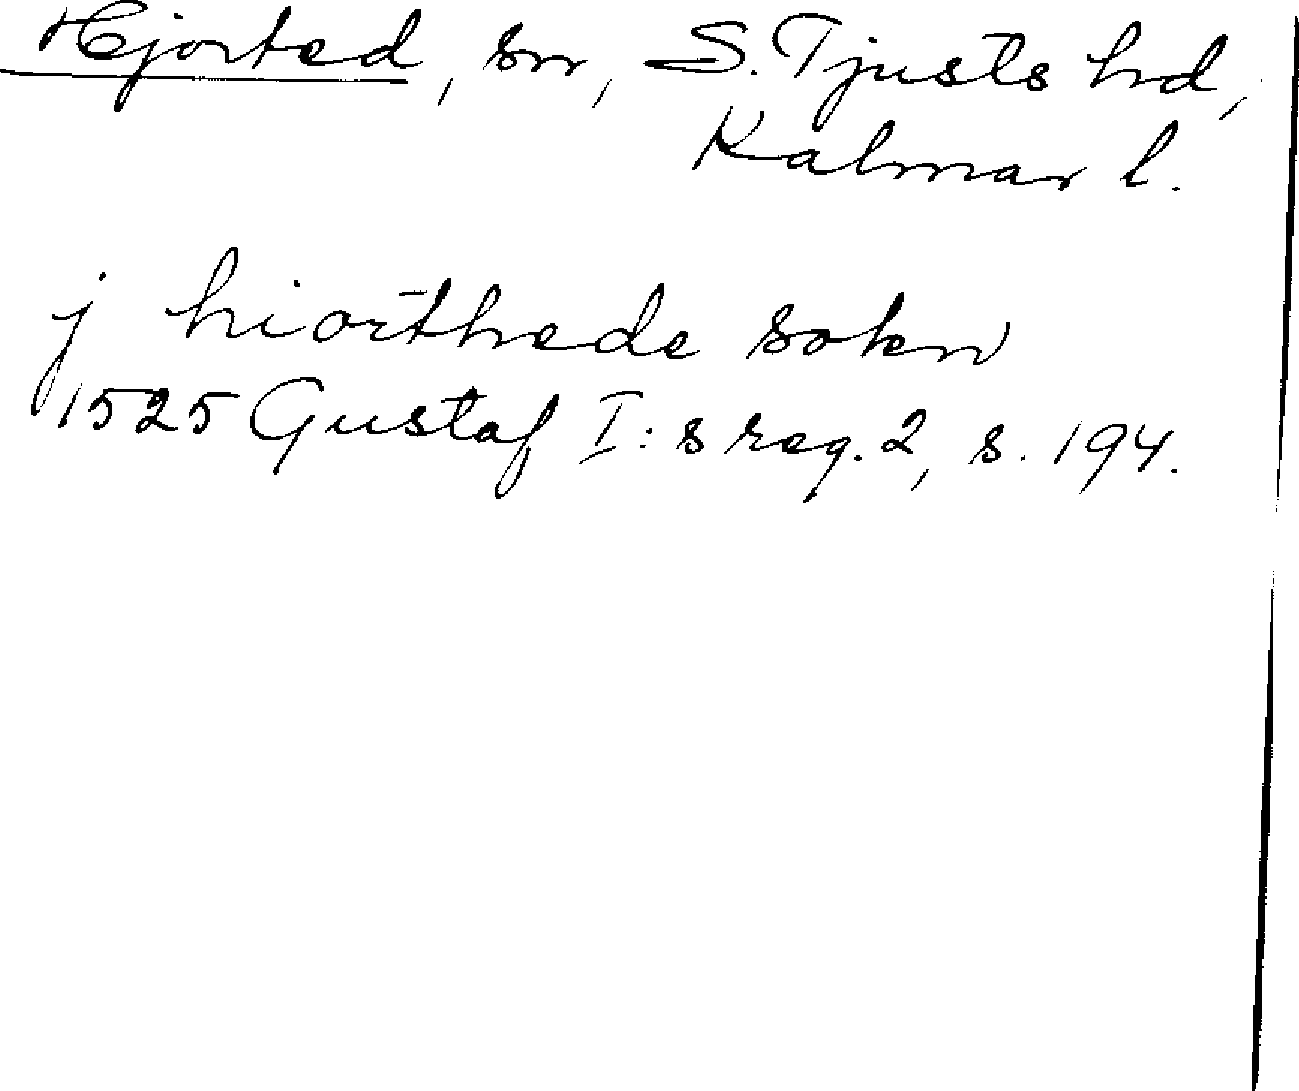 Hjorted, sn, S. Tjusts hd,
Kalmar l.
j hiorthede sokn
1525 Gustaf I:s reg. 2, s. 194.